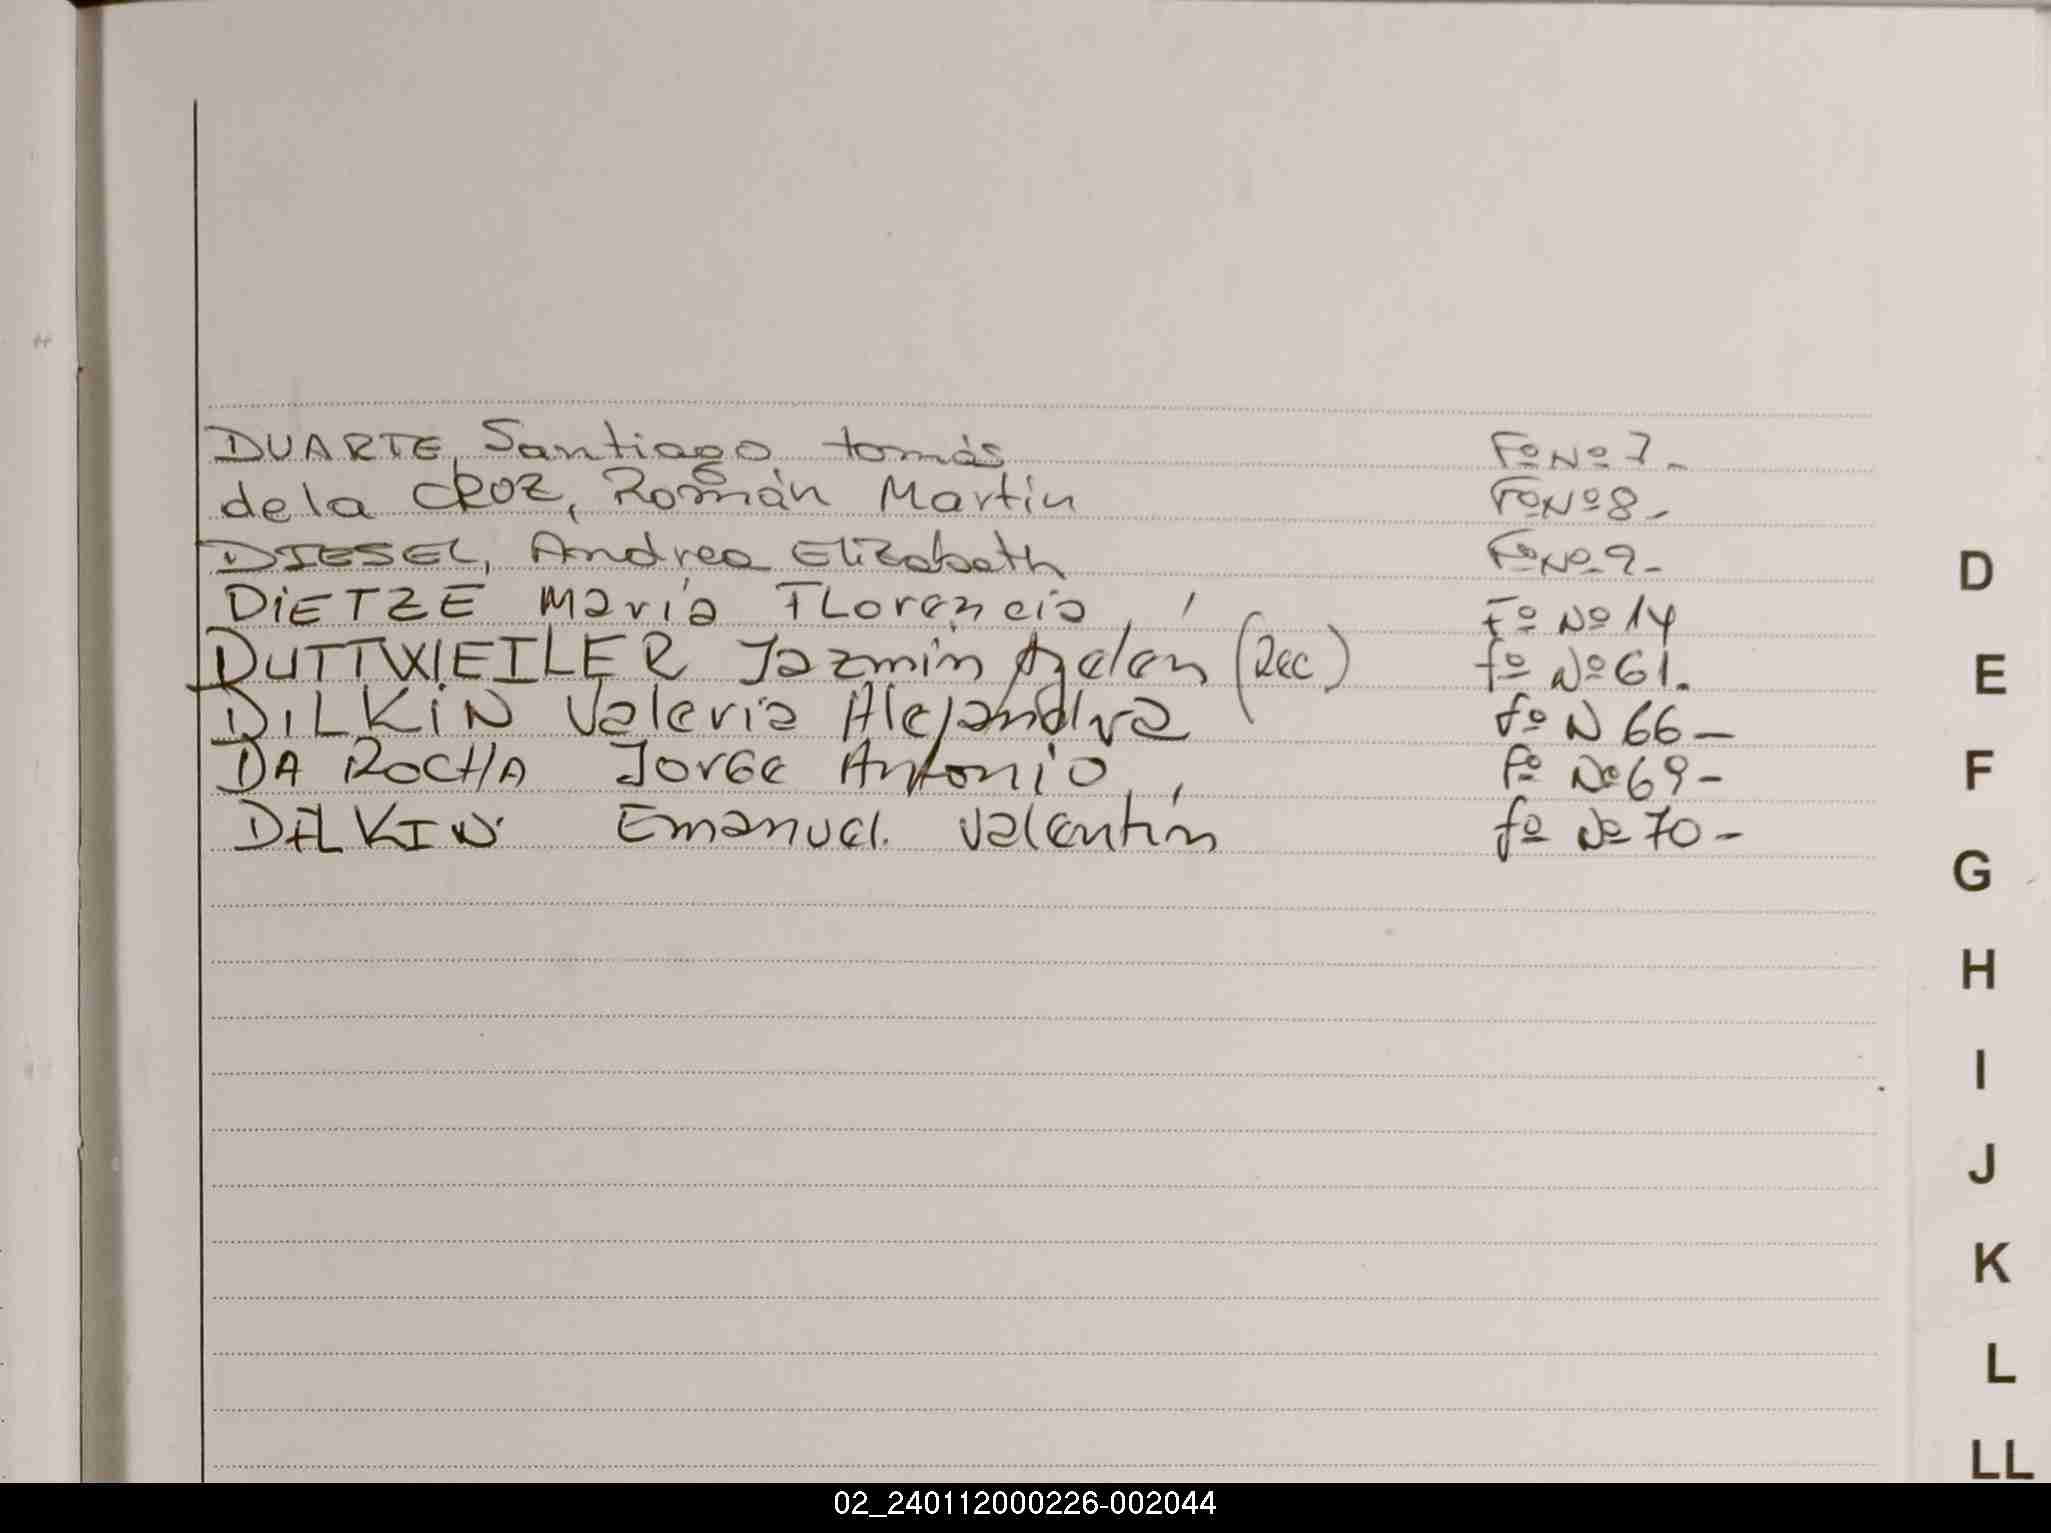 DUARTE, Santiago tomás Fº Nº 7-
de la CROZ, Román Martin Fº Nº 8-
DIESEL, Andrea Elizabeth Fº Nº 9-
DiETZE María FLorencia Fº Nº 14
DUTTWEILER Jazmín Ayelén (Rec) fº Nº 61.
DiLKiN Valeria Alejandra fº N 66-
DA ROCHA Jorge Antonio Fº Nº 69-
DILKIN Emanuel Valentín fº Nº 70-
D
E
F
G
H
I
J
K
L
LL
02_240112000226-002044